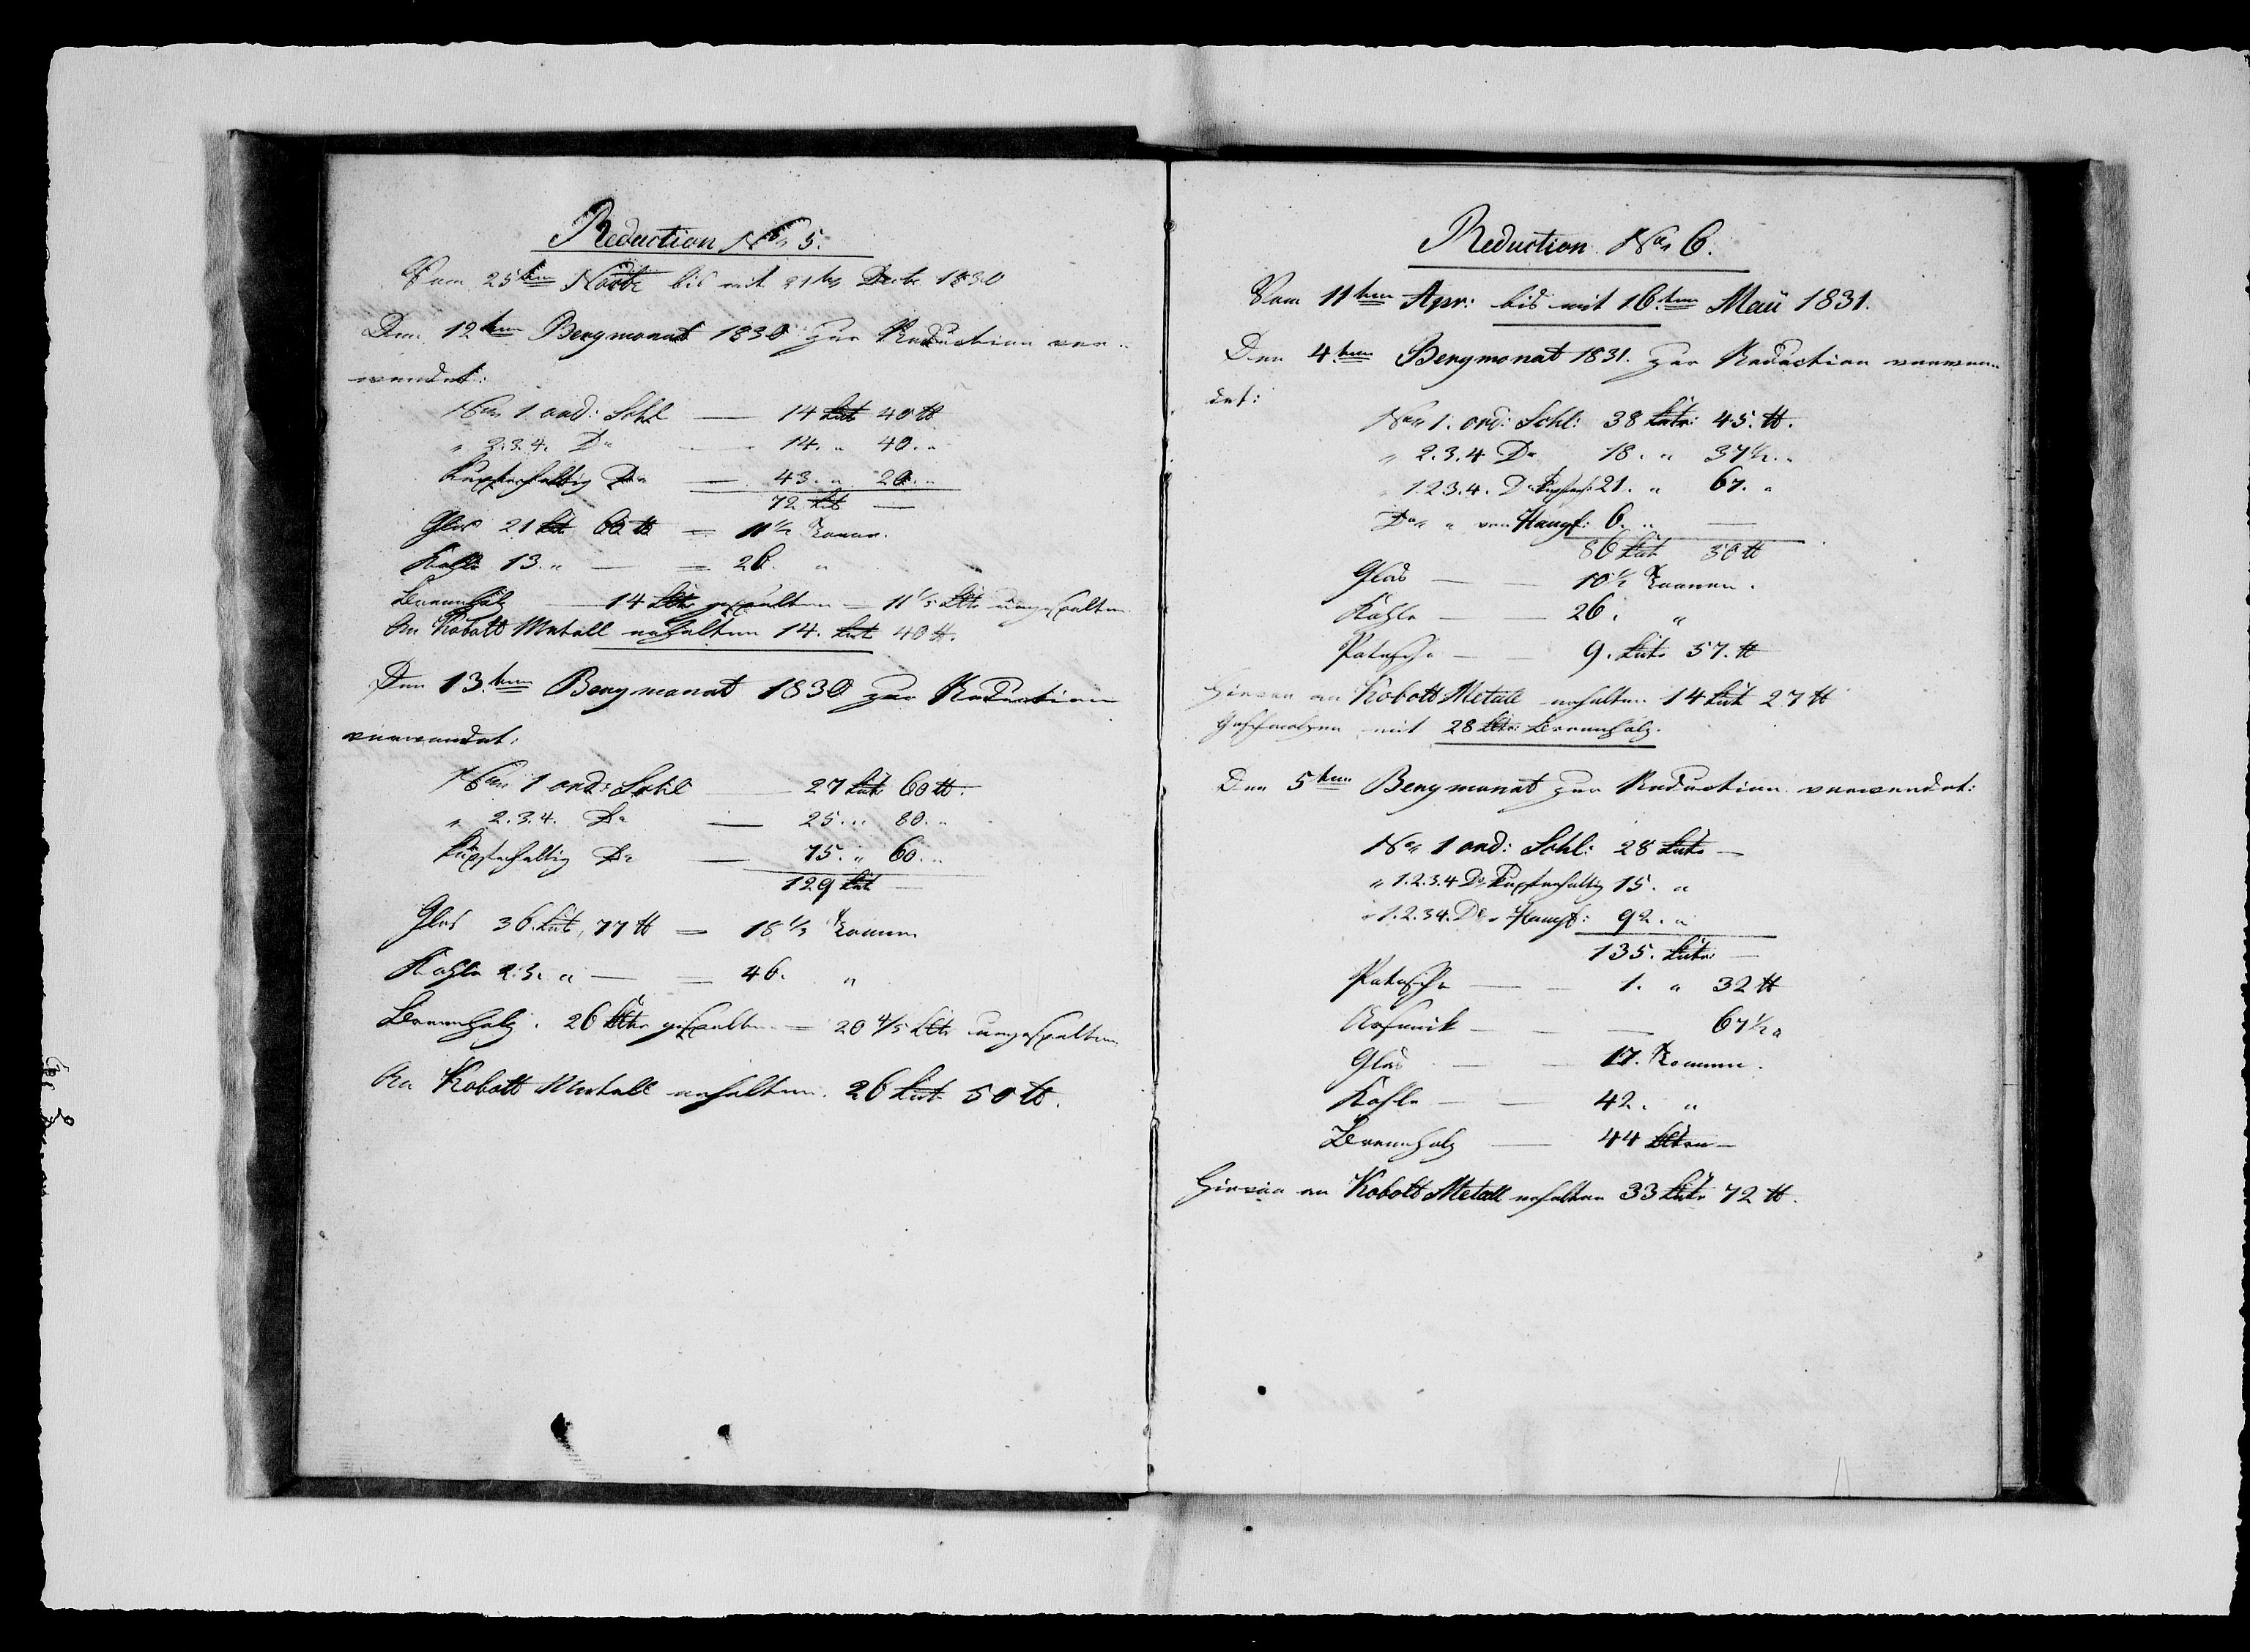 Reduction No 5.
Vom 25ten Novbr bis mit 21ten Decbr 1830
Den 12ten Bergmonat 1830 zur Reduction ver-
wendet:
No 1 ord: Schl — 14 Ctr 40 ℔
" 2.3.4. Do — 14. " 40. "
Kupferhaltig Do — 43. " 20. "
72 Ctr —
Glas 21 Ctr 60 ℔ = 11 1/2 Tonnen.
Kohle 13. " — = 26. "
Brennholz — 14 gespalten = 11 1/5 ungespalten
An Kobolt Metall erhalten 14. Ctr 40 ℔.
Den 13ten Bergmonat 1830 zur Reduction
verwendet:
No 1 ord: Schl — 27 Ctr 60 ℔.
" 2.3.4. Do — 25. " 80. "
Kupferhaltig Do — 75. " 60. "
129 Ctr —
Glas 36. Ctr, 77 ℔ = 18 1/3 Tonnen
Kohle 23. " — = 46. "
Brennholz. 26 gespalten = 20 4/5 ungespalten
An Kobolt Metall erhalten. 26 Ctr 50 ℔.
Reduction No 6.
Vom 11ten Apr: bis mit 16.ten Maii 1831.
Den 4ten Bergmonat 1831. zur Reduction verwen
det:
No 1. ord: Schl: 38 Ctr: 45. ℔.
" 2.3.4 Do 18. " 37 1/2. "
" 1.2.3.4. Do Kupferh: 21. " 67. "
Do " von Hampf: 6. " —
86 Ctr 50 ℔
Glas — — 10 1/2 Tonnen.
Kohle — — 26. "
Potasche — — 9. Ctr 57. ℔
Hievon an Kobolt Metall erhalten 14 Ctr 27 ℔
Geschmolzen mit 28 Brennholz.
Den 5ten Bergmonat zur Reduction verwendet:
No 1 ord: Schl: 28 Ctr —
" 1.2.3.4 Do Kupferhaltig 15. "
" 1.2.3 4. Do " Hampf: 92. "
135. Ctr: —
Potasche — — 1. " 32 ℔
Arsenik — — — 67 1/2 "
Glas — — 17. Tonnen.
Kohle — — 42. "
Brennholz — 44 —
Hievon an Kobolt Metall erhalten 33 Ctr 72 ℔.